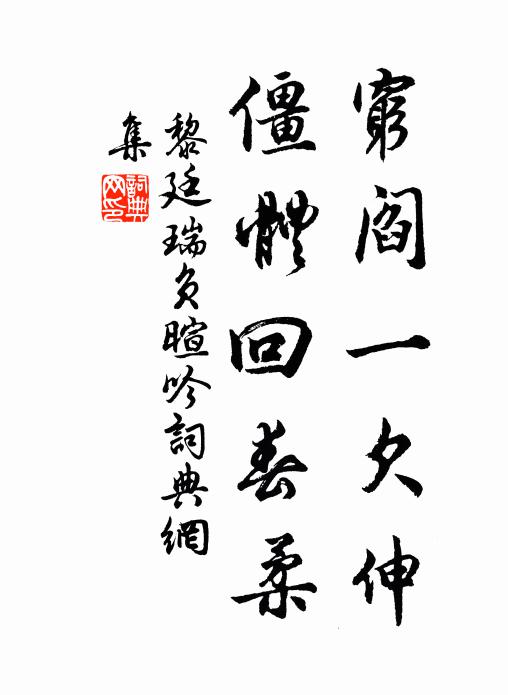 窮閻一欠伸
僵體回春柔
黎廷瑞負暄吟詞典網
集
詞典
網印